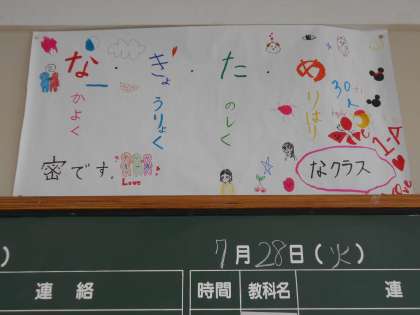 な・ぎ・た・め
かよく
ょうりょく
のしく
りはり
30人
密です。
Love
なクラス
1-A
)
7月28日(火)
連絡
時間
教科名
連